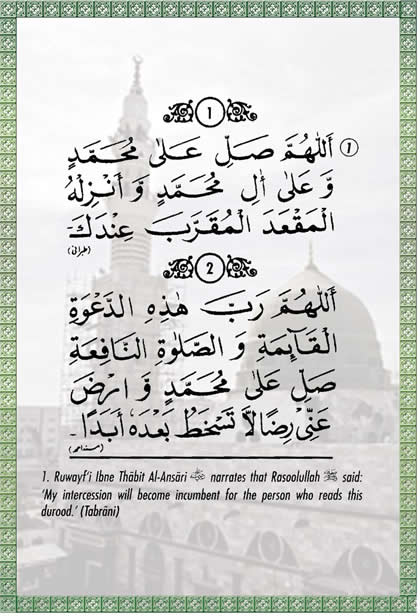 1
① أَللّٰهُمَّ صَلِّ عَلٰى مُحَمَّدٍ
وَّ عَلٰى اٰلِ مُحَمَّدٍ وَ أَنْزِلْهُ
الْمَقْعَدَ الْمُقَرَّبَ عِنْدَكَ
(طبرانی)
2
أَللّٰهُمَّ رَبَّ هٰذِهِ الدَّعْوَةِ
الْقَآئِمَةِ وَ الصَّلٰوةِ النَّافِعَةِ
صَلِّ عَلٰى مُحَمَّدٍ وَّ ارْضَ
عَنِّىْ رِضًا لَّا تَسْخَطُ بَعْدَهٗ أَبَدًا۔
(مسند احمد)
1. Ruwayf’i Ibne Thābit Al-Ansāri رضي الله عنه narrates that Rasoolullah ﷺ said:
‘My intercession will become incumbent for the person who reads this
durood.’ (Tabrāni)